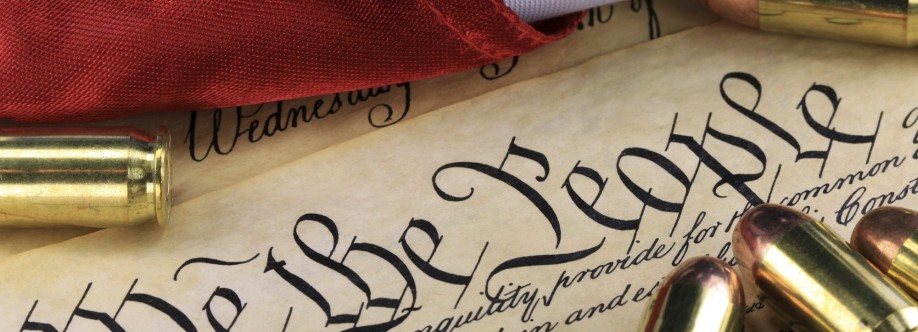 Wednesday
We the People
quility, provide for the common
in and